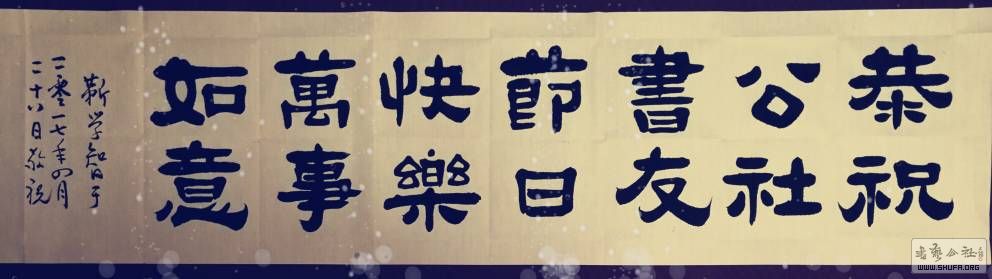 恭祝
公社
書友
節日
快樂
萬事
如意
靳学智于
二零一七年四月
二十八日敬祝
WWW.SHUFA.ORG